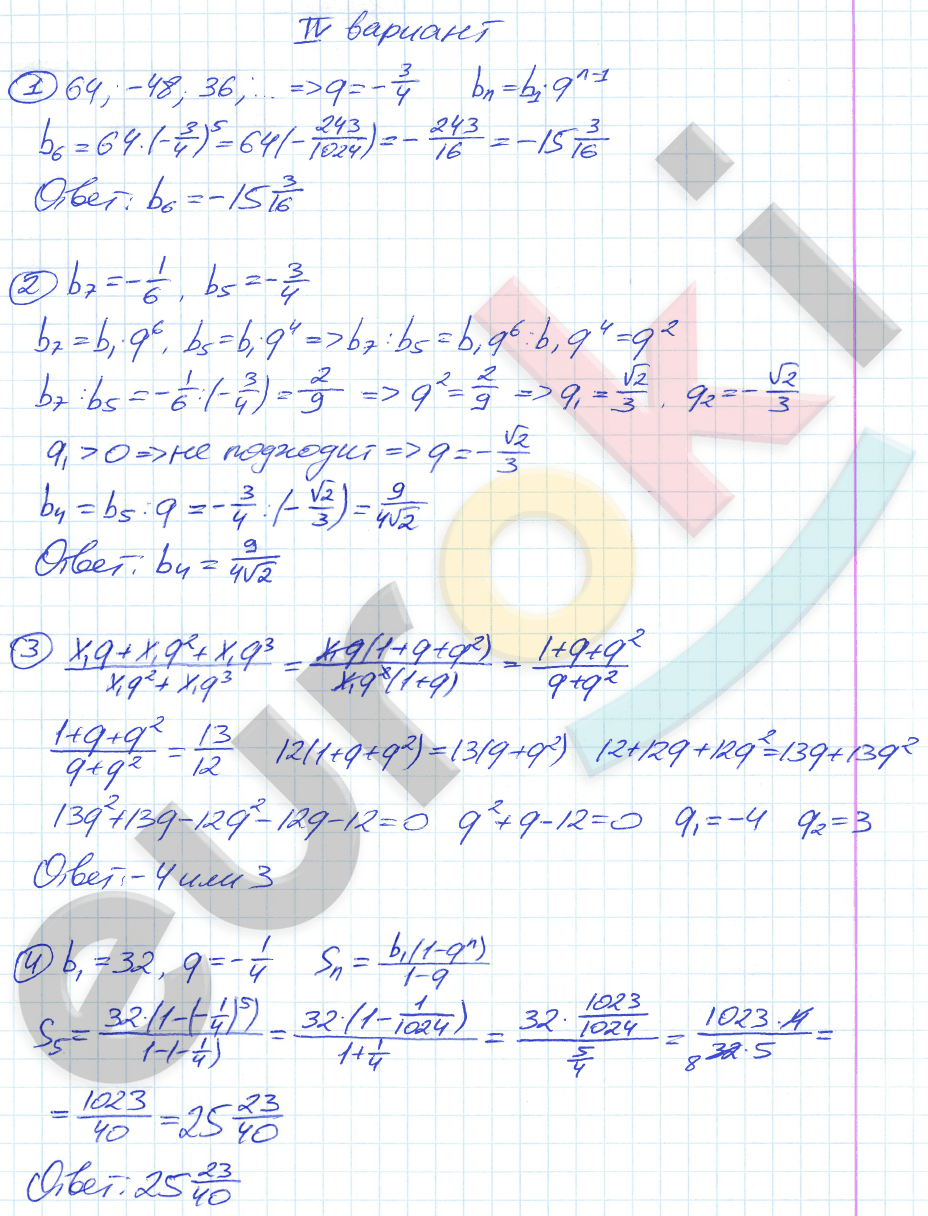 IV вариант
① 64; -48; 36; ... => q = -3/4 bₙ = b₁·qⁿ⁻¹
b₆ = 64·(-3/4)⁵ = 64(-243/1024) = -243/16 = -15 3/16
Ответ: b₆ = -15 3/16
② b₇ = -1/6, b₅ = -3/4
b₇ = b₁·q⁶, b₅ = b₁·q⁴ => b₇ : b₅ = b₁q⁶ : b₁q⁴ = q²
b₇ : b₅ = -1/6 : (-3/4) = 2/9 => q² = 2/9 => q₁ = √2/3, q₂ = -√2/3
q₁ > 0 => не подходит => q = -√2/3
b₄ = b₅ : q = -3/4 : (-√2/3) = 9/4√2
Ответ: b₄ = 9/4√2
③ (x₁q + x₁q² + x₁q³)/(x₁q² + x₁q³) = x₁q(1+q+q²)/x₁q²(1+q) = (1+q+q²)/(q+q²)
(1+q+q²)/(q+q²) = 13/12 12(1+q+q²) = 13(q+q²) 12+12q+12q² = 13q+13q²
13q²+13q-12q²-12q-12=0 q²+q-12=0 q₁=-4 q₂=3
Ответ: -4 или 3
④ b₁ = 32, q = -1/4 Sₙ = b₁(1-qⁿ)/(1-q)
S₅ = 32·(1-(-1/4)⁵)/(1-(-1/4)) = 32·(1-1/1024)/(1+1/4) = (32·1023/1024)/(5/4) = 1023·4/(32·5) 8 =
= 1023/40 = 25 23/40
Ответ: 25 23/40
euroki